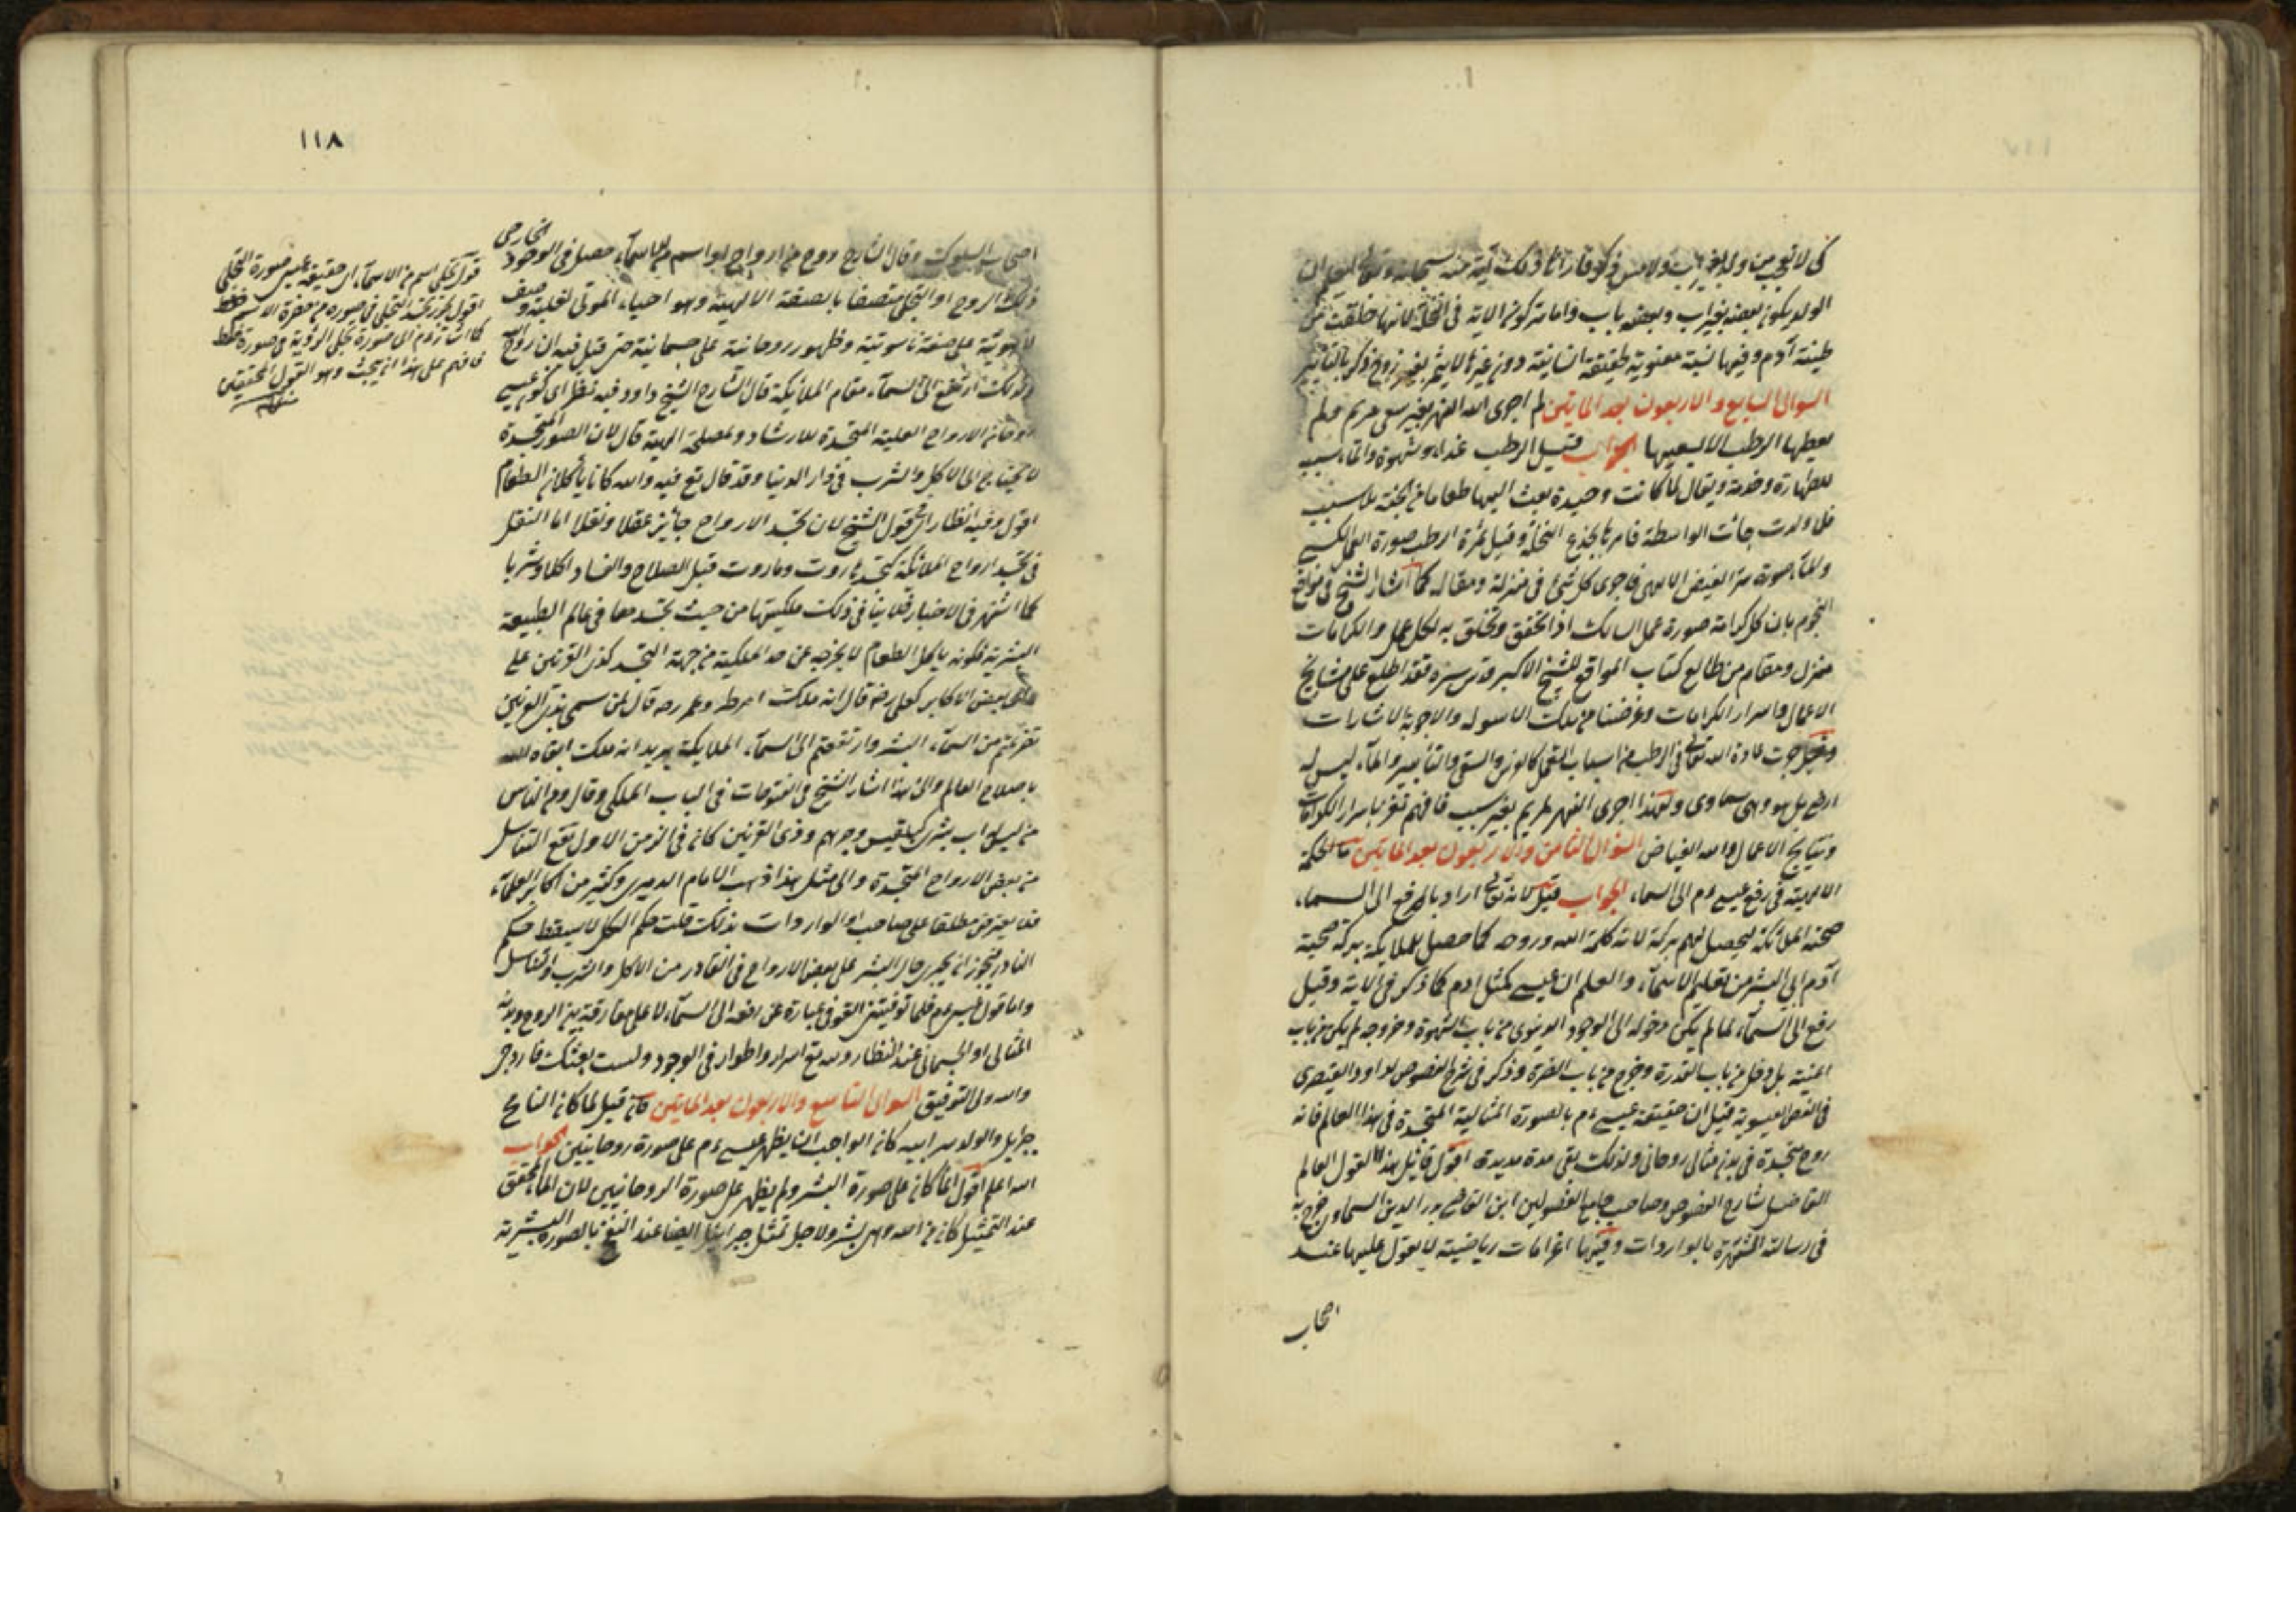 كى لا تعجبى من ولد بغير اب ولا مس ذكر فان ذلك آية منه سبحانه
الولد يكون بعضه بغير اب وبعضه باب واما سر كون الاية فى النخلة لانها خلقت من
طينة آدم وفيها نسبة معنوية حقيقة انسانية دون غيرها لا يثمر بغير زوج ذكر بالتأبير
السوال السابع والاربعون بعد المايتين لم اجرى الله النهر بغير سعى مريم ولم
يعطها الرطب الا بسعيها الجواب قيل الرطب غذاء وشهوة والماء سبب
للطهارة وخدمة ويقال لما كانت وحيدة بعث اليها طعاما من الجنة بلا سبب
فلما ولدت جائت الواسطة فامر بالجذع النخلة وقيل ثمرة الرطب صورة العمل الكسبى
والماء صورة سر الفيض الالهى فاجرى كل شئ فى منزله ومقاله كما اشار الشيخ فى مواقع
النجوم بان كل كرامة صورة عمل السالك اذا تحقق وتخلق به لكل عمل والكرامات
منزل ومقام من طالع كتاب المواقع للشيخ الاكبر قدس سره فقد اطلع على نتايج
الاعمال واسرار الكرامات وغرضنا من تلك الاسوله والاجوبة الاشارات
وقيل جرت عادة الله تعالى فى الرطب من اسباب التعمل كالغرس والسقى والتأبير والماء ليس له
ارضى بل هو وهبى سماوى ولهذا اجرى النهر لمريم بغير سبب فافهم تفز باسرار الكرامات
ونتايج الاعمال والله الفياض السوال الثامن والاربعون بعد المايتين ما الحكمة
الالهية فى رفع عيسى ءم الى السماء الجواب قيل لانه تعالى اراد بالرفع الى السماء
صحبة الملائكة ليحصل لهم بركة لانه كلمة الله وروحه كما حصل للملايكة بركة صحبة
آدم ابى البشر من تعليم الاسماء والعلم ان عيسى كمثل ادم كما ذكر فى الاية وقيل
رفع الى السماء لما لم يكن دخوله الى الوجود الدنيوى من باب الشهوة وخروجه لم يكن من باب
المنية بل دخل من باب القدرة وخرج من باب العزة وذكر فى شرح الفصوص لداود القيصرى
فى الفص العيسوية قيل ان حقيقة عيسى ءم بالصورة المثالية المتجسدة فى هذا العالم فانه
روح متجسدة فى بدن مثالى روحانى ولذلك بقى مدة مديدة اقول قائل هذا القول العالم
الفاضل شارح الفصوص وصاحب جامع الفصولين ابن القاضى بدر الدين السماونى خرج به
فى رسالته المشتهرة بالواردات وفيها اغرامات رياضية لا يعول عليها عند
اصحاب
١١٨
اصحاب السلوك وقال الشارح روح من ارواح او اسم من الاسماء حصل فى الوجود الخارجى
ذلك الروح او التجلى متصفا بالصفة الالهية وهو احياء الموتى لغلبة وصف
لاهوتية على صفة ناسوتية وظهور روحانية على جسمانية حتى قيل فيه ان روح الله
ولذلك ارتفع الى السماء مقام الملائكة قال الشارح الشيخ داود فيه نظر اى كون عيسى
روحا من الارواح العلية المتجسدة للارشاد ولمصلحة الهية قال لان الصور المتجسدة
لا يحتاج الى الاكل والشرب فى دار الدنيا وقد قال تع فيه وامه كانا يأكلان الطعام
اقول وفيه انظار اى قول الشيخ لان تجسد الارواح جائز عقلا ونقلا اما النقل
فى تجسد ارواح الملائكة كتجسد هاروت وماروت قبل الصلاح والفساد اكلا وشربا
كما اشتهر فى الاخبار فلا ينافى ذلك ملكيتها من حيث تجسدهما فى عالم الطبيعة
البشرية فكونه يأكل الطعام لا يخرجه عن حد الملكية من جهة التجسد كذى القرنين على
بعض الاكابر كعلى رضه قال انه ملك وعمر رضه قال لمن سمى بذى القرنين
تفزعتم من اسماء البشر وارتفعتم الى اسماء الملايكة يريد انه ملك ابقاه الله
باصلاح العالم والى هذا اشار الشيخ فى الفتوحات فى الباب الملكى وقال ومن الناس
من ليس له اب بشرى كبلقيس وجرهم وذى القرنين كان فى الزمن الاول تقع التناسل
من بعض الارواح المتجسدة والى مثل هذا ذهب الامام الدميرى وكثير من اكابر العلماء
فلا يعترض مطلقا على صاحب الواردات بذلك قلت حكم الكل لا يسقط حكم
النادر فيجوز ان يجرى حال البشر على بعض الارواح فى النادر من الاكل والشرب والتناسل
واما قول عيسى ءم فلما توفيتنى التوفى عبارة عن رفعه الى السماء لا على مفارقة بين الروح وبدنه
المثالى او الجسمانى عند النظار ولله تع اسرار واطوار فى الوجود
والله ولى التوفيق السوال التاسع والاربعون بعد المايتين فان قيل لما كان النافخ
جبرايل والولد سر ابيه كان الواجب ان يظهر عيسى ءم على صورة روحانيين الجواب
الله اعلم اقول انما كان على صورة البشر ولم يظهر على صورة الروحانيين لان الماء المحقق
عند التمثيل كان من امه وهى بشر ولاجل تمثل جبرائيل ايضا عند النفخ بالصورة البشرية
قوله تجلى اسم من الاسماء اى حقيقة عيسى صورة التجلى
اقول يجوز تجسد التجلى فى صوره من حضرة الاسم
كما اشار ءم الى صورة تجلى الرؤية فى صورة
فافهم على هذا ان يبحث وهو القول المحققين